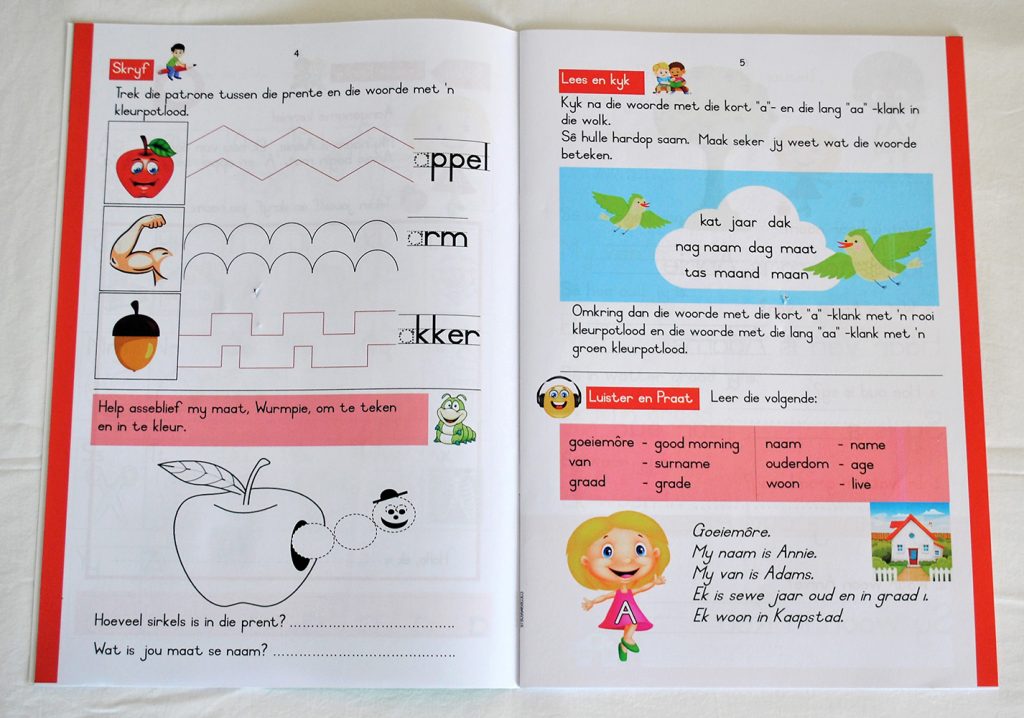 4
Skryf
Trek die patrone tussen die prente en die woorde met 'n
kleurpotlood.
appel
arm
akker
Help asseblief my maat, Wurmpie, om te teken
en in te kleur.
Hoeveel sirkels is in die prent? ....................................
Wat is jou maat se naam? ........................................
5
Lees en kyk
Kyk na die woorde met die kort "a"- en die lang "aa" -klank in
die wolk.
Sê hulle hardop saam. Maak seker jy weet wat die woorde
beteken.
kat jaar dak
nag naam dag maat
tas maand maan
Omkring dan die woorde met die kort "a" -klank met 'n rooi
kleurpotlood en die woorde met die lang "aa" -klank met 'n
groen kleurpotlood.
Luister en Praat Leer die volgende:
goeiemôre - good morning naam - name
van - surname ouderdom - age
graad - grade woon - live
Goeiemôre.
My naam is Annie.
My van is Adams.
Ek is sewe jaar oud en in graad 1.
Ek woon in Kaapstad.
A